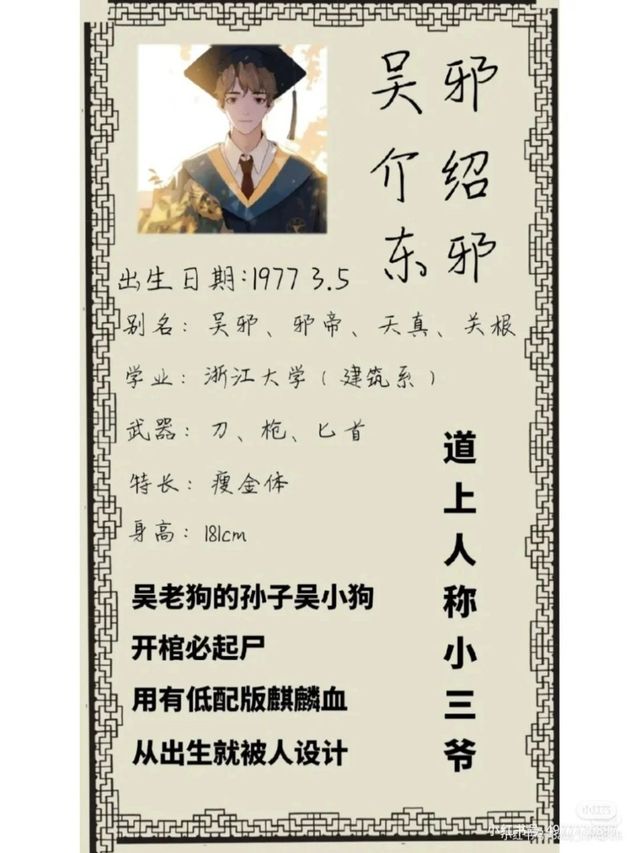 吴邪
介绍
东邪
出生日期:1977 3.5
别名：吴邪、邪帝、天真、关根
学业：浙江大学（建筑系）
武器：刀、枪、匕首
特长：瘦金体
身高：181cm
道上人称小三爷
吴老狗的孙子吴小狗
开棺必起尸
用有低配版麒麟血
从出生就被人设计
小红书